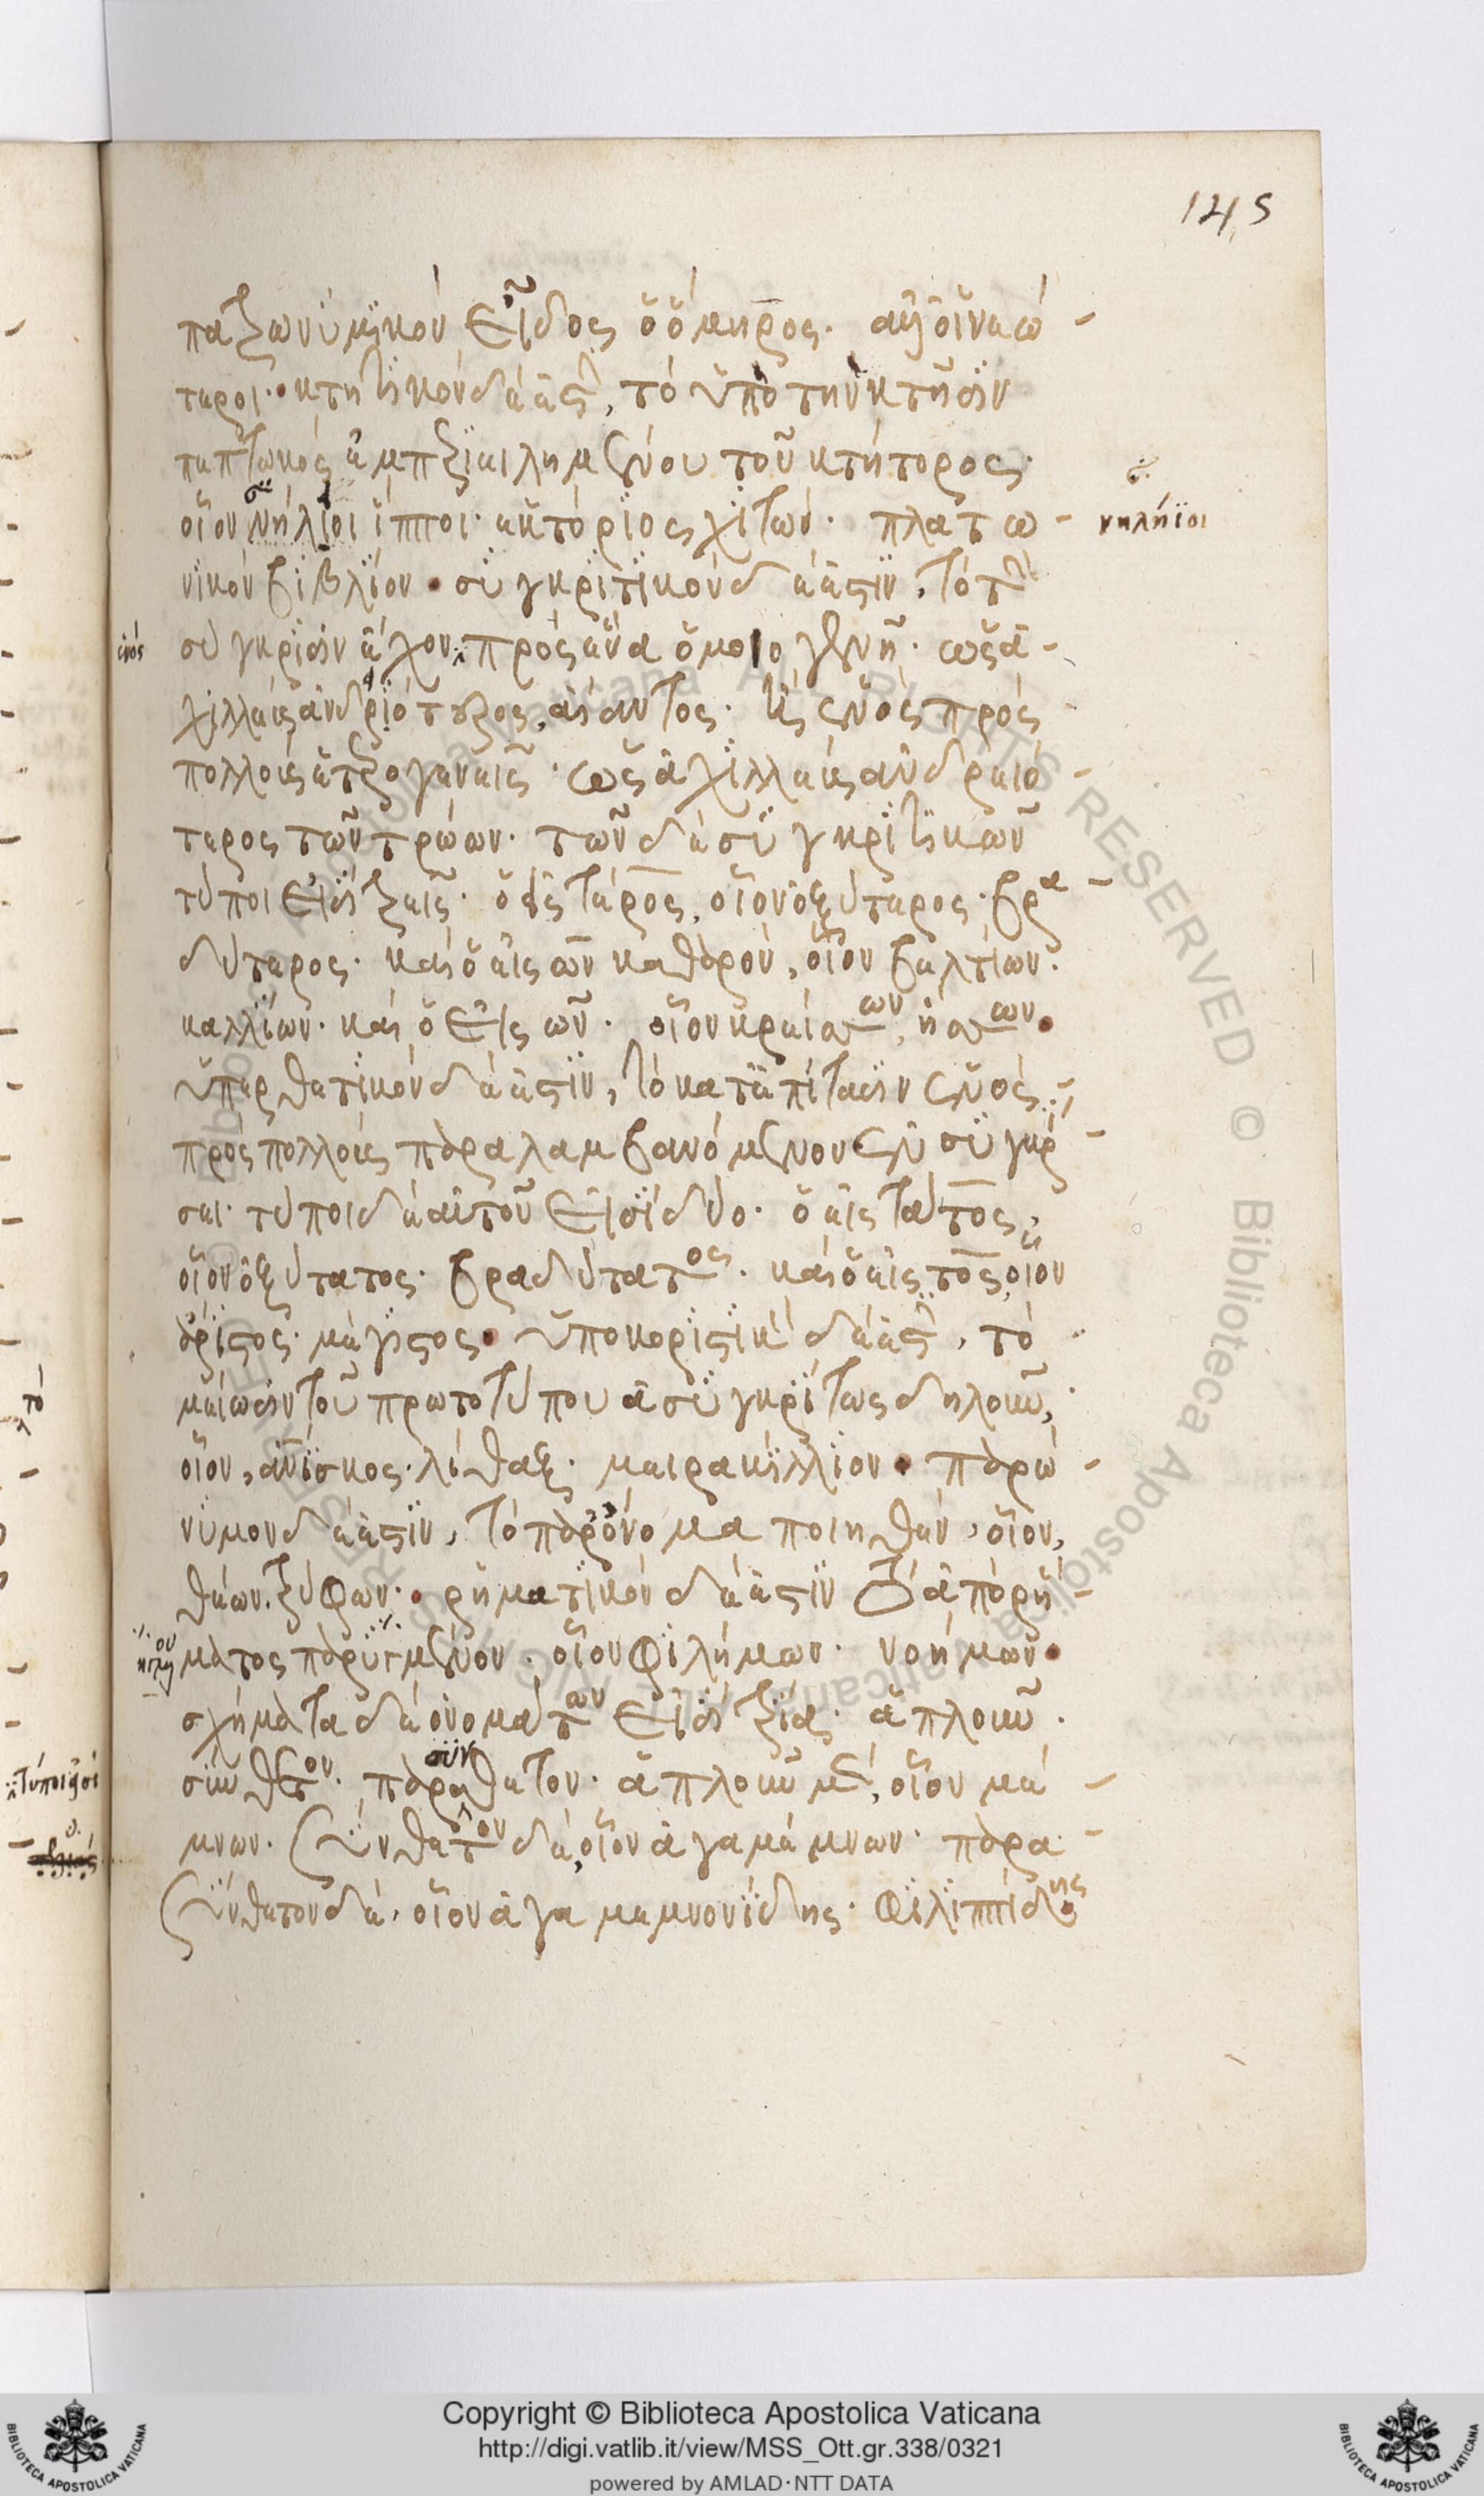 145
πατρωνυμικὸν εἶδος ὁ ὅμηρος· ἀλλ' οἱ νεώ-
τεροι· κτητικὸν δέ ἐστι, τὸ ὑπὸ τὴν κτῆσιν
πεπτωκὸς ἐμπεριειλημμένου τοῦ κτήτορος·
οἷον νηλίοι ἵπποι· ἑκτόριος χιτών· πλατω-
νικὸν βιβλίον· συγκριτικὸν δέ ἐστιν, τὸ τὴν
σύγκρισιν ἔχον πρὸς ἕνα ὁμοιογενῆ· ὡς ἀ-
χιλλεὺς ἀνδριότερος αἴαντος· ἢ ὡς ἑνὸς πρὸς
πολλοὺς ἑτερογενεῖς· ὡς ἀχιλλεὺς ἀνδρειό-
τερος τῶν τρώων· τῶν δὲ συγκριτικῶν
τύποι εἰσὶ τρεῖς· ὁ εἰς τερος, οἷον ὀξύτερος· βρα-
δύτερος· καὶ ὁ εἰς ων καθαρὸν, οἷον βελτίων·
καλλίων· καὶ ὁ εἰς ων· οἷον κρείσσων, ἥσσων·
ὑπερθετικὸν δέ ἐστιν, τὸ κατ' ἐπίτασιν ἑνὸς
πρὸς πολλοὺς παραλαμβανόμενον ἐν συγκρί-
σει· τύποι δὲ αὐτοῦ εἰσὶ δύο· ὁ εἰς τατος,
οἷον ὀξύτατος· βραδύτατος· καὶ ὁ εἰς τος, οἷον
ἄριστος· μέγιστος· ὑποκοριστικὸν δέ ἐστι, τὸ
μείωσιν τοῦ πρωτοτύπου ἀσυγκρίτως δηλοῦν,
οἷον, ἀνίσκος· λίθαξ· μειρακύλλιον· παρώ-
νυμον δέ ἐστιν, τὸ παρ' ὄνομα ποιηθὲν, οἷον,
θέων· τρύφων· ῥηματικὸν δέ ἐστιν τὸ ἀπὸ ῥή-
ματος παρηγμένον· οἷον φιλήμων· νοήμων·
σχήματα δὲ ὀνομάτων εἰσὶ τρία· ἁπλοῦν·
σύνθετον· παρασύνθετον· ἁπλοῦν μὲν, οἷον μέ-
μνων· σύνθετον δὲ, οἷον ἀγαμέμνων· παρα-
σύνθετον δέ· οἷον ἀγαμεμνονίδης· φιλιππίδης
νηλήϊοι
ἑνός
Copyright © Biblioteca Apostolica Vaticana
http://digi.vatlib.it/view/MSS_Ott.gr.338/0321
powered by AMLAD·NTT DATA